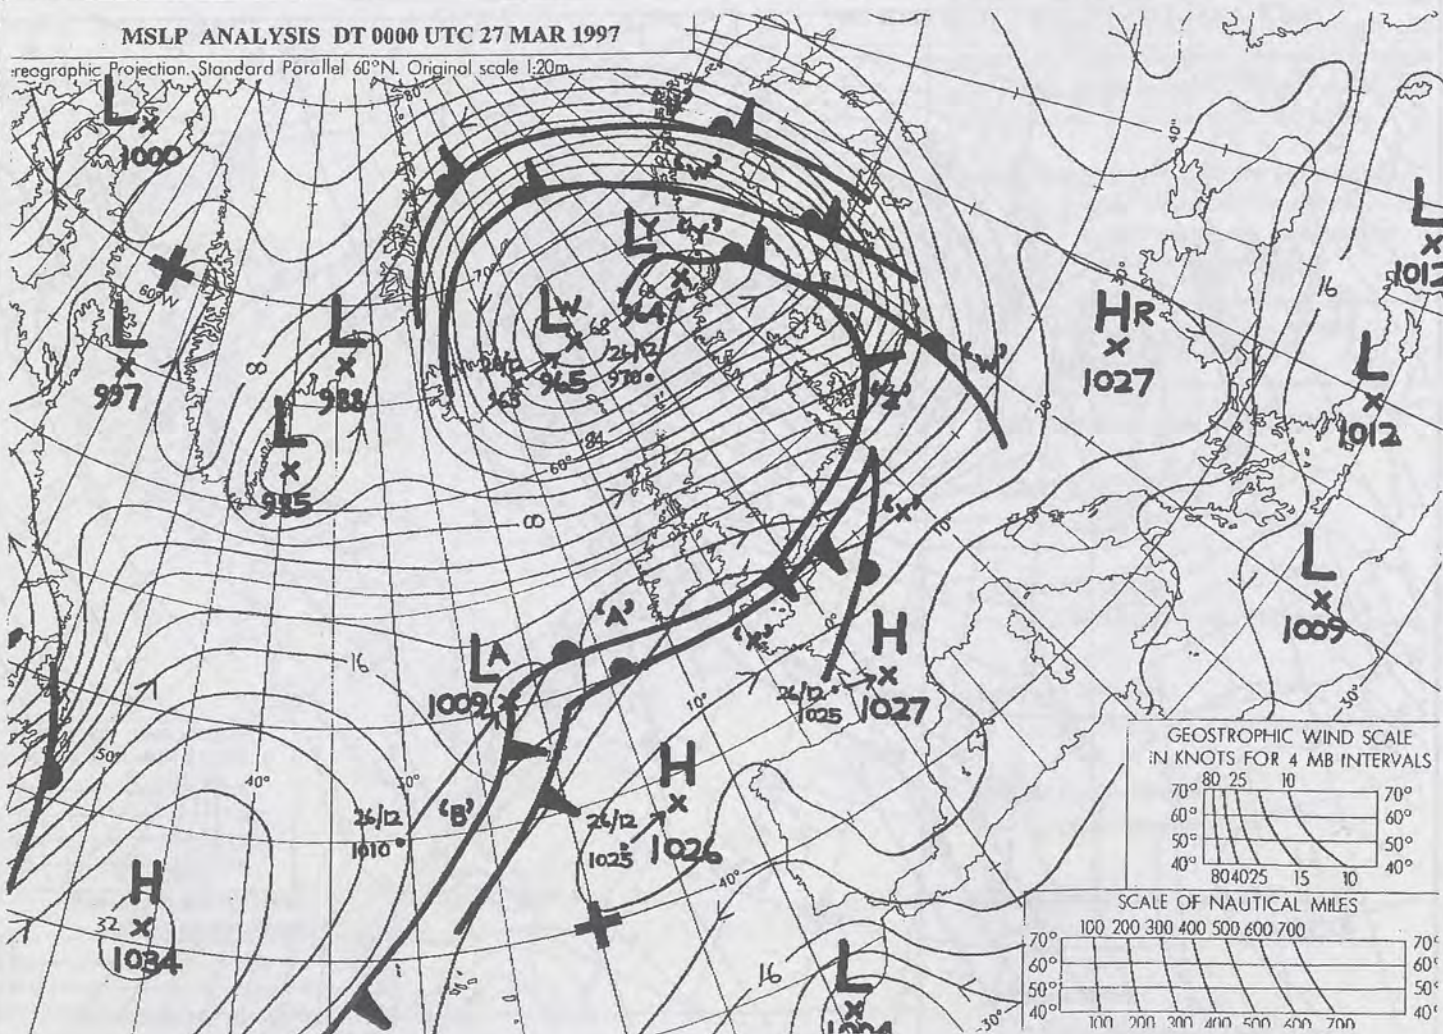 MSLP ANALYSIS DT 0000 UTC 27 MAR 1997
reographic Projection. Standard Parallel 60°N. Original scale 1:20m
L
1000
80
40°
'W'
60°W
L
997
L
988
8
L
985
70°
LY 'Y'
964
68
LW
965
68
26/12
970
26/12
965
84
60°
8
'Z'
'W'
HR
1027
30°
20°
16
L
1012
L
1012
L
1009
'X'
10°
'A'
LA
1009
'X'
0°
H
1027
26/12
1025
16
50°
40°
30°
10°
26/12
1010
'B'
H
1026
26/12
1025
40°
H
32
1034
16
L
1004
30°
30°
GEOSTROPHIC WIND SCALE
IN KNOTS FOR 4 MB INTERVALS
80 25 10
70° 70°
60° 60°
50° 50°
40° 40°
80 40 25 15 10
SCALE OF NAUTICAL MILES
100 200 300 400 500 600 700
70° 70°
60° 60°
50° 50°
40° 40°
100 200 300 400 500 600 700